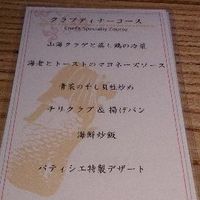 クラブディナーコース
山海クラゲと蒸し鶏の冷菜
海老とトーストのマヨネーズソース
青菜の干し貝柱炒め
チリクラブ & 揚げパン
海鮮炒飯
パティシエ特製デザート